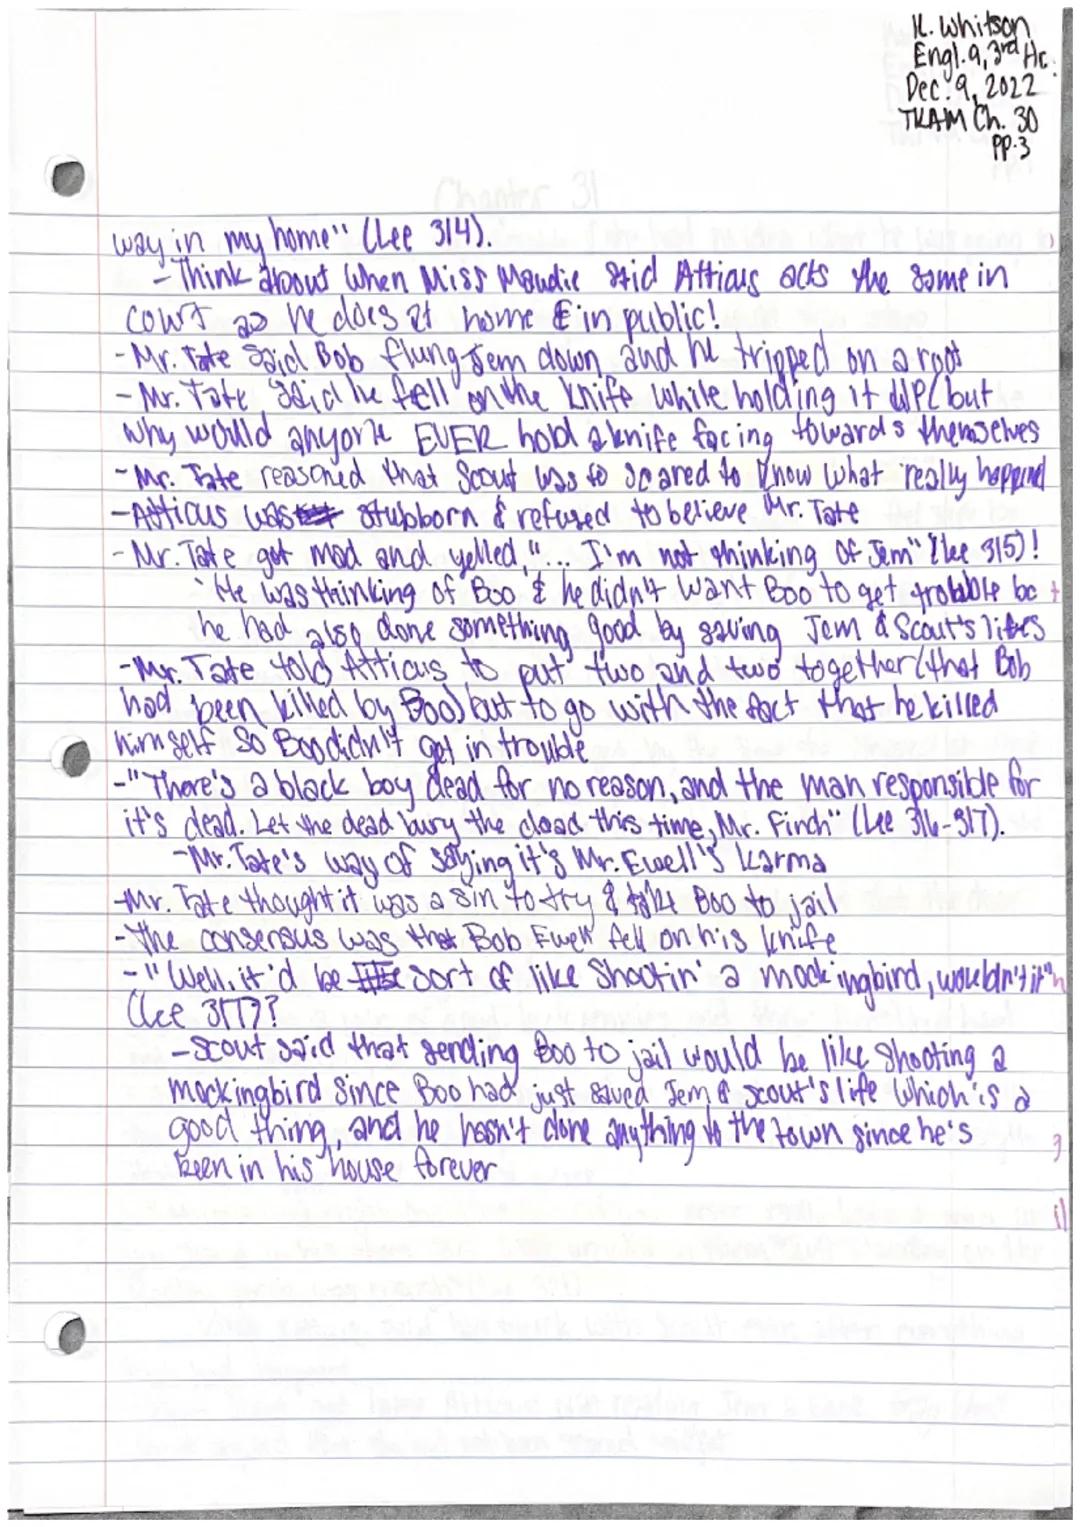 K. Whitson
Engl. 9, 3rd Ac.
Dec. 9, 2022
TKAM Ch. 30
pp. 3
Chapter 31
way in my home" (Lee 314).
- Think about when Miss Maudie said Atticus acts the same in
court as he does at home & in public!
- Mr. Tate said Bob flung Jem down and he tripped on a root
- Mr. Tate said he fell on the knife while holding it up (but
why would anyone EVER hold a knife facing towards themselves
- Mr. Tate reasoned that Scout was to scared to know what really happend
- Atticus was stubborn & refused to believe Mr. Tate
- Mr. Tate got mad and yelled, "... I'm not thinking of Jem" (Lee 315)!
- He was thinking of Boo & he didn't want Boo to get trobble bc
he had also done something good by saving Jem & Scout's lifes
- Mr. Tate told Atticus to put two and two together (that Bob
had been killed by Boo) but to go with the fact that he killed
himself so Boo didn't get in trouble
- "There's a black boy dead for no reason, and the man responsible for
it's dead. Let the dead bury the dead this time, Mr. Finch" (Lee 316-317).
- Mr. Tate's way of saying it's Mr. Ewell's karma
- Mr. Tate thought it was a sin to try & take Boo to jail
- The consensus was that Bob Ewell fell on his knife
- "Well, it'd be sort of like shootin' a mockingbird, wouldn't it"
(Lee 317)?
- Scout said that sending Boo to jail would be like shooting a
mockingbird since Boo had just saved Jem & Scout's life which is a
good thing, and he hasn't done anything to the town since he's
been in his house forever